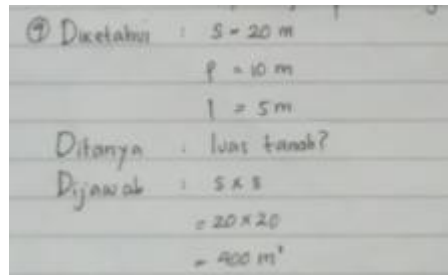 ⑨ Diketahui : S = 20 m
p = 10 m
l = 5 m
Ditanya : luas tanah?
Dijawab : s x s
= 20 x 20
= 400 m²